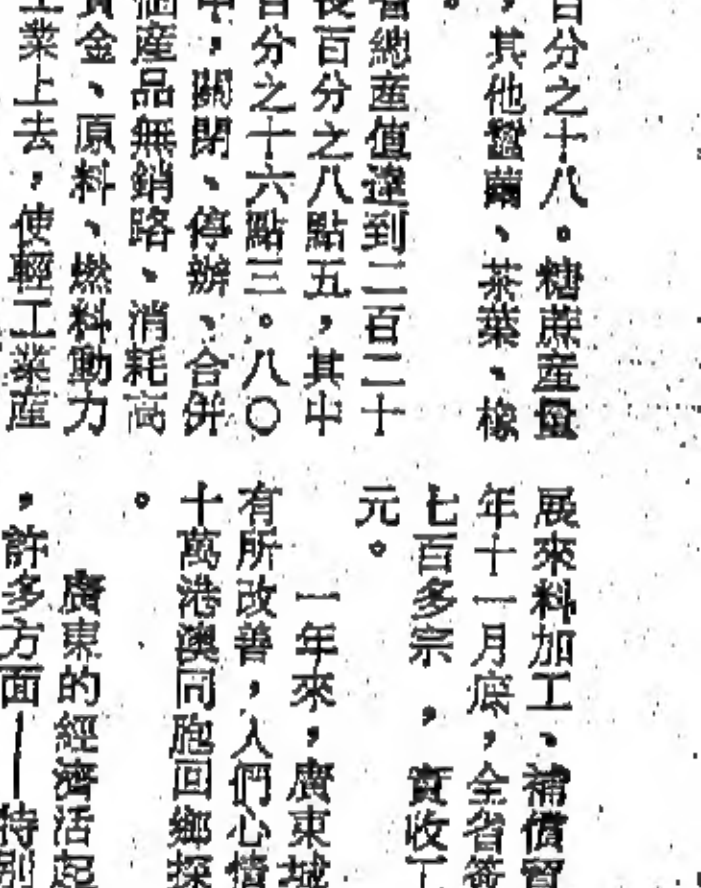 百分之十八。糖蔗産量
，其他蠶繭、茶葉、橡
。
會總産值達到二百二十
長百分之八點五，其中
百分之十六點三。八〇
中，關閉、停辦、合併
個産品無銷路、消耗高
資金、原料、燃料動力
工業上去，使輕工業産
展來料加工、補償貿
年十一月底，全省簽
七百多宗，實收工
元。
一年來，廣東城
有所改善，人們心情
十萬港澳同胞回鄉探
。
廣東的經濟活起
，許多方面——特別